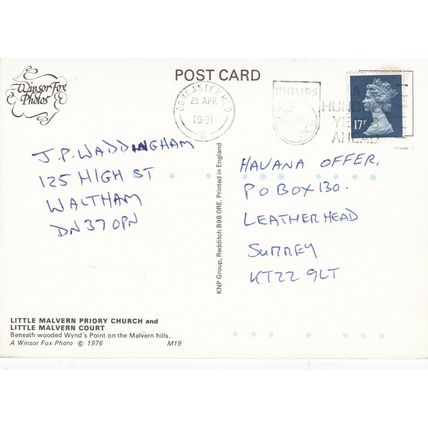 Winsor Fox
Photos
POST CARD
DONCASTER
25 APR
1991
PHILIPS
A
HUNDRED
YEARS
AHEAD
17P
J.P. WADDINGHAM
125 HIGH ST
WALTHAM
DN37 0PN
HAVANA OFFER,
P O BOX 130.
LEATHERHEAD
SURREY
KT22 9LT
KNP Group, Redditch B98 0RE. Printed in England
LITTLE MALVERN PRIORY CHURCH and
LITTLE MALVERN COURT
Beneath wooded Wynd's Point on the Malvern hills.
A Winsor Fox Photo © 1976 M19